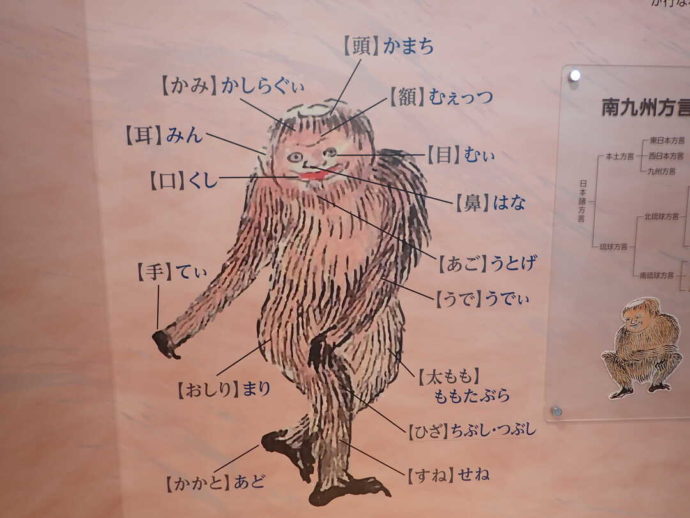 が行な
【頭】かまち
【かみ】かしらぐぃ
【額】むぇっつ
【耳】みん
【目】むぃ
【口】くし
【鼻】はな
【あご】うとげ
【手】てぃ
【うで】うでぃ
【おしり】まり
【太もも】
ももたぶら
【ひざ】ちぶし・つぶし
【かかと】あど
【すね】せね
南九州方言
日本諸方言
本土方言
東日本方言
西日本方言
九州方言
琉球方言
北琉球方言
南琉球方言